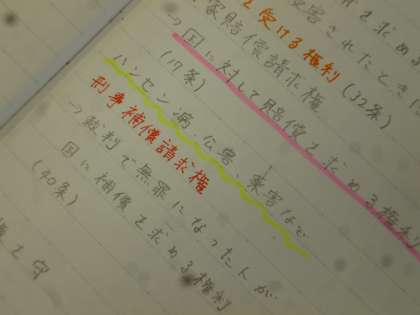 を求める
侵害されたときに
を受ける権利(32条)
家賠償請求権
→国に対して賠償を求める権利
(17条)
ハンセン病、公害、薬害など
刑事補償請求権
→裁判で無罪になった人が
国に補償を求める権利
(40条)